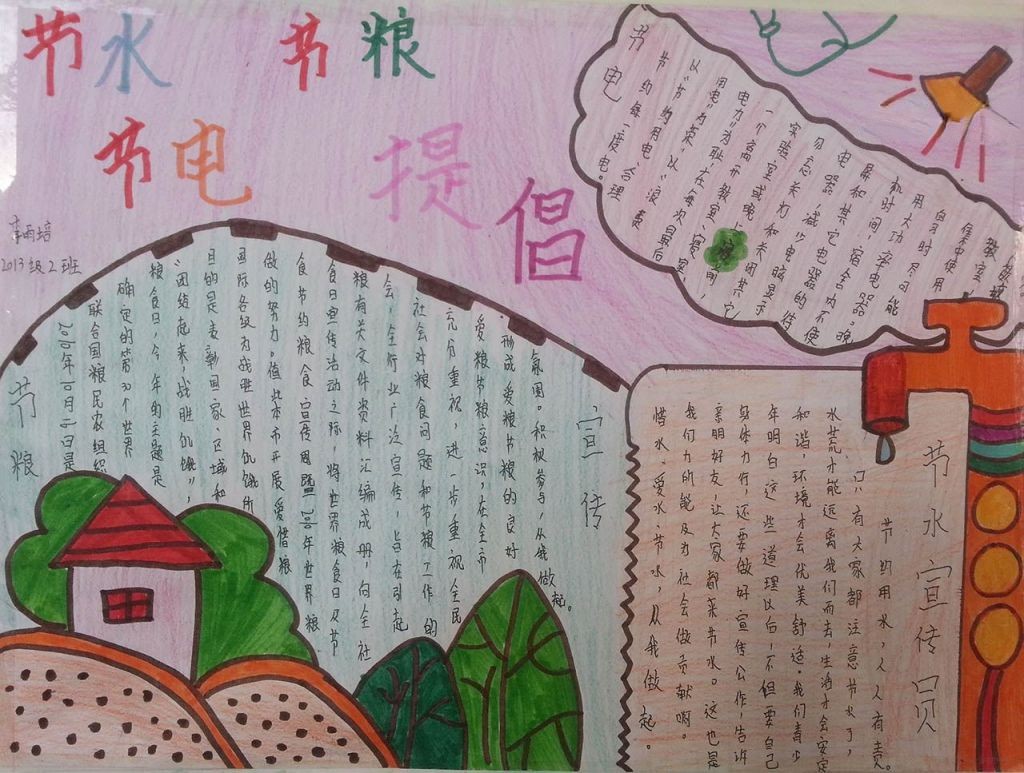 节水 节粮
节电 提
倡
李雨培
2013级2班
节电
节约每一度电。合理
以"节约用电"
电力"为耻,在每次最后
一个离开教室、寝室
实验室或晚上
勿忘关灯和关闭其它
电器,减少电器的待
屏和其它电器
机时间,
用大功
自习时尽可能
集中使用
教室
节粮
宣传
2010年10月16日是
联合国粮民农组织
确定的第30个世界
粮食日,今年的主题是
"团结起来,战胜饥饿",
目的是表彰国家、区域和
国际各级为战胜世界饥饿所
做的努力。值此本市开展爱惜粮
食节约粮食宣传周暨2010年世界粮
食日宣传活动之际,将世界粮食日及节
粮有关文件资料汇编成册,向全社
会,全行业广泛宣传,旨在引起
社会对粮食问题和节粮工作的
充分重视,进一步重视全民
爱粮节粮意识,在全市
形成爱粮节粮的良好
氛围。积极参与,从我做起。
节水宣传员
节约用水,人人有责。
只有大家都注意节水了,
水荒才能远离我们而去,生活才会安定
和谐,环境才会优美舒适。我们青少
年明白这些道理以后,不但要自己
身体力行,还要做好宣传工作,告诉
亲朋好友,让大家都来节水。这也是
我们力所能及为社会做贡献啊。
惜水、爱水、节水,从我做起。